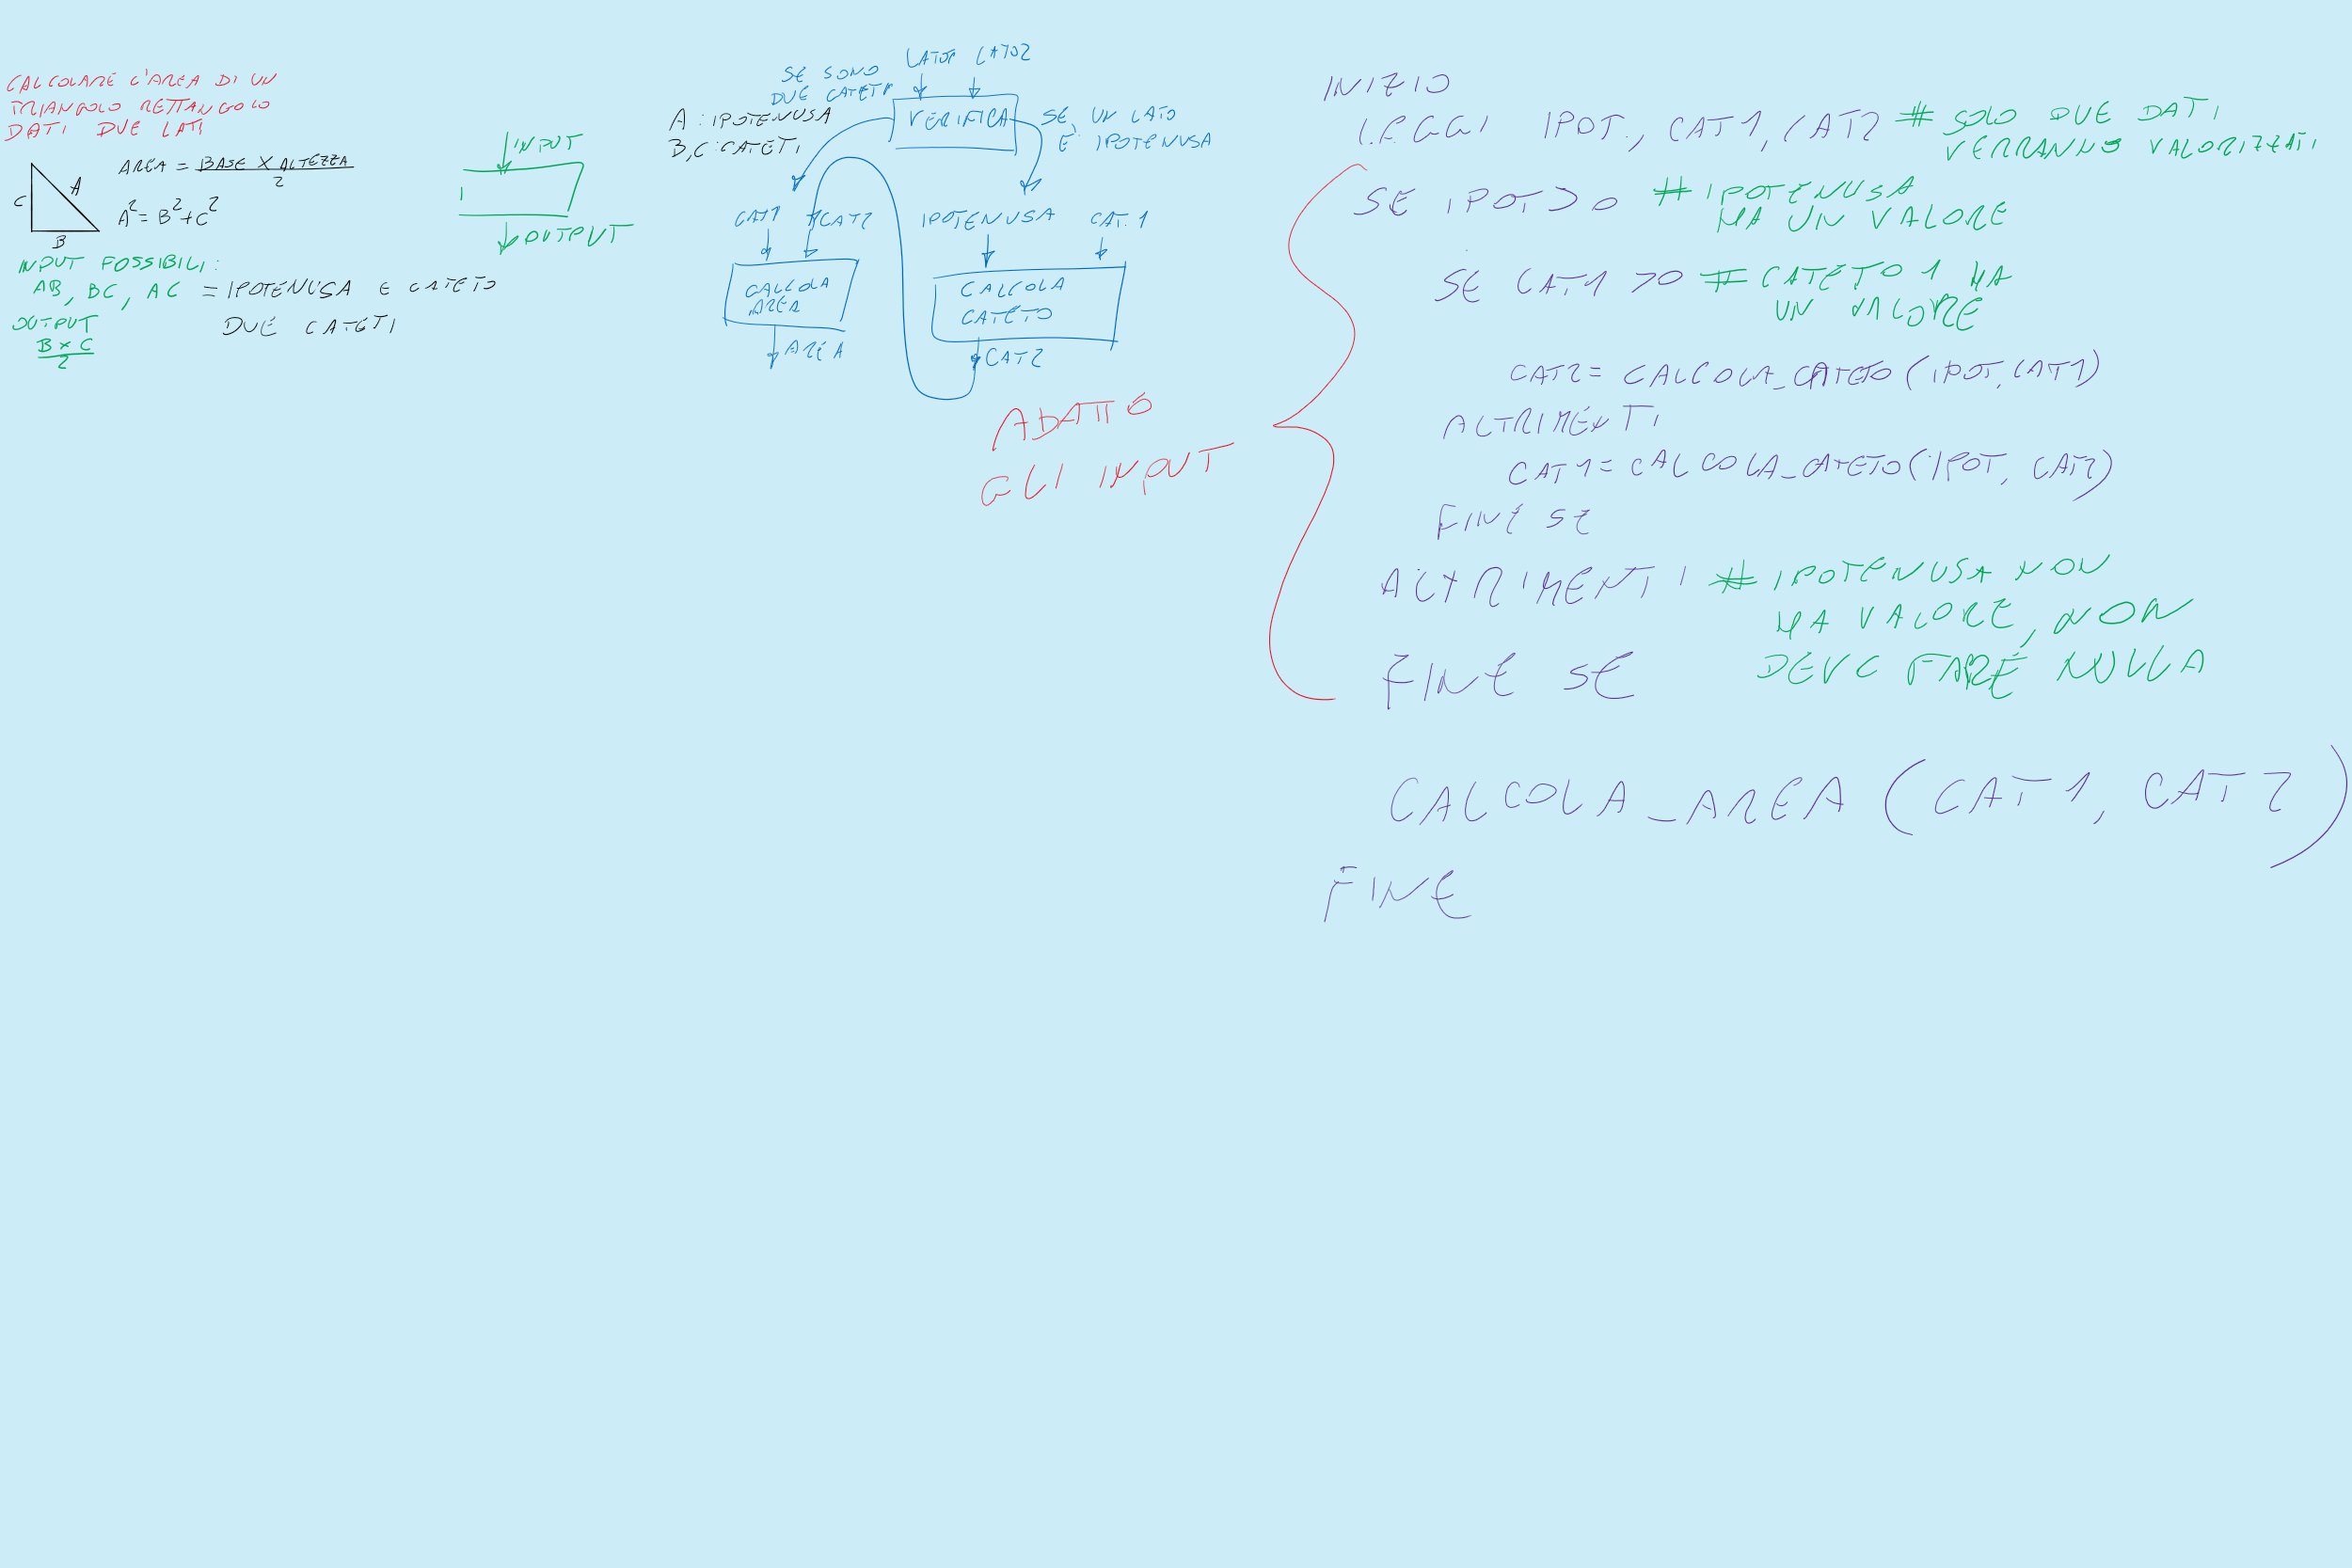 CALCOLARE L'AREA DI UN
TRIANGOLO RETTANGOLO
DATI DUE LATI
C
A
B
AREA = BASE X ALTEZZA
2
A² = B² + C²
INPUT POSSIBILI:
AB, BC, AC = IPOTENUSA E CATETO
DUE CATETI
OUTPUT
B × C
2
INPUT
OUTPUT
A : IPOTENUSA
B, C : CATETI
SE SONO
DUE CATETI
LATO1 LATO2
VERIFICA
SE UN LATO
E' IPOTENUSA
CAT1 CAT2
IPOTENUSA CAT. 1
CALCOLA
AREA
AREA
CALCOLA
CATETO
CAT2
ADATTO
GLI INPUT
INIZIO
LEGGI IPOT., CAT1, CAT2 # SOLO DUE DATI
VERRANNO VALORIZZATI
SE IPOT > 0 # IPOTENUSA
HA UN VALORE
SE CAT1 > 0 # CATETO 1 HA
UN VALORE
CAT2 = CALCOLA_CATETO (IPOT, CAT1)
ALTRIMENTI
CAT1 = CALCOLA_CATETO (IPOT, CAT2)
FINE SE
ALTRIMENTI # IPOTENUSA NON
HA VALORE, NON
DEVE FARE NULLA
FINE SE
CALCOLA_AREA (CAT1, CAT2)
FINE